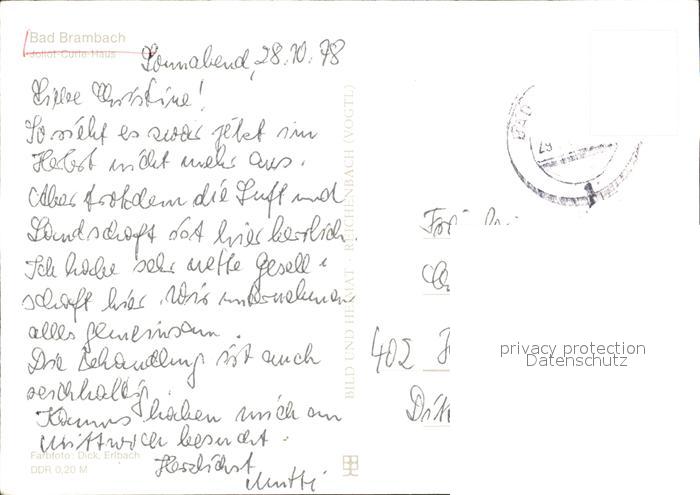 Bad Brambach
Joliot-Curie-Haus
Sonnabend, 28.10.78
Liebe Christine!
So sieht es zwar jetzt im
Herbst nicht mehr aus.
Aber trotzdem die Luft und
Landschaft ist hier herrlich.
Ich habe sehr nette Gesell-
schaft hier. Wir unternehmen
alles gemeinsam.
Die Behandlung ist auch
reichhaltig.
haben mich am
Mittwoch besucht.
Herzlichst
Mutti
Farbfoto: Dick, Erlbach
DDR 0,20 M
BILD UND HEIMAT REICHENBACH (VOGTL)
402
privacy protection
Datenschutz